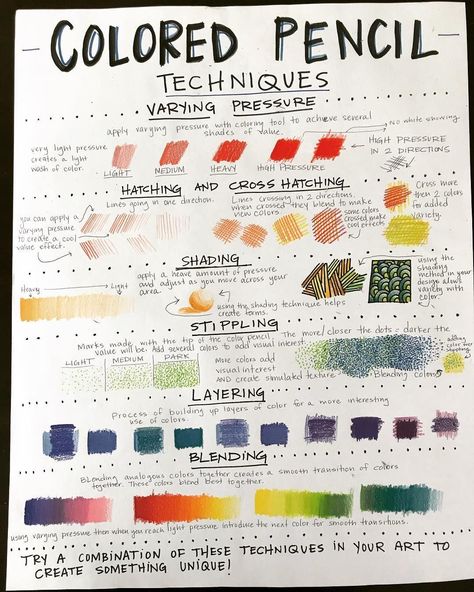 COLORED PENCIL
TECHNIQUES
VARYING PRESSURE
apply varying pressure with coloring tool to achieve several
shades of value.
No white showing
very light pressure
creates a light
wash of color.
LIGHT
MEDIUM
HEAVY
HIGH PRESSURE
HIGH PRESSURE
IN 2 DIRECTIONS
HATCHING AND CROSS HATCHING
Lines going in one direction.
you can apply a
varying pressure
to create a cool
value effect.
Lines crossing in 2 directions.
when crossed they blend to make
new colors.
same colors
crossed make
cool effects
Cross more
then 2 colors
for added
variety.
SHADING
Heavy
Light
apply a heave amount of pressure
and adjust as you move across your
area.
using the shading technique helps
create forms.
using the
shading
method in your
design allows
variety with
color.
STIPPLING
Marks made, with the tip of the color pencil. The more/closer the dots = darker the
value will be. Add several colors to add visual interest.
LIGHT
MEDIUM
DARK
More colors add
visual interest
AND create simulated texture
Blending colors
adding
color over
stippling
LAYERING
Process of building up layers of color for a more interesting
use of colors.
BLENDING
Blending analogous colors together creates a smooth transition of colors
together. These colors blend best together.
using varying pressure then when you reach light pressure introduce the next color for smooth transitions.
TRY A COMBINATION OF THESE TECHNIQUES IN YOUR ART TO
CREATE SOMETHING UNIQUE!